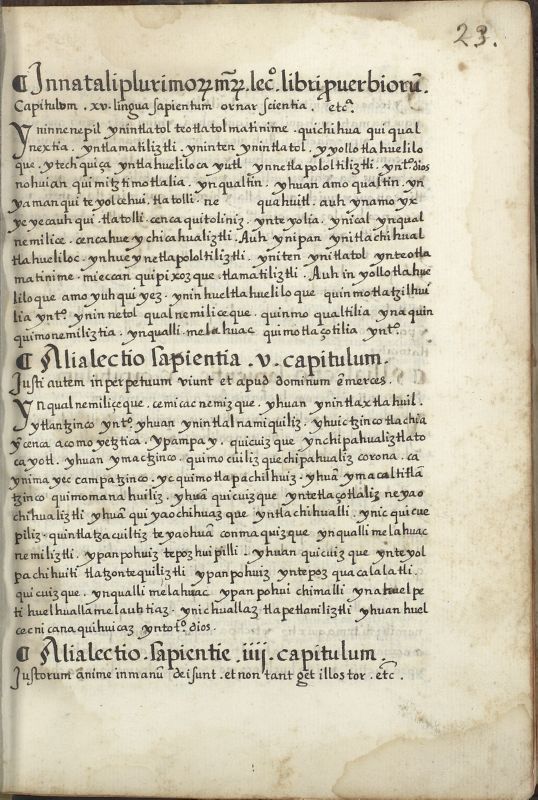 23.
¶ Innatali plurimoꝝ mꝝ̃. lec̊. libri ꝓverbiorũ.
Capitulom . xv. lingua sapientum ornar scientia . etc̃.
Yninnenepil ynintlatol teotlatolmatinime . quichihua qui qual
nextia . yntlamatiliztli . yninten ynintlatol . yyollotlahuelilo
que . ytech quiça yntlahueliloca yutl ynnetlapololtiliztli . ynto. dios
nohuian qui mitztimotlalia . yn qualtin . yhuan amo qualtin . yn
yamanqui teyolcehui . tlatolli . ne quahuitl . auh ynamo yx
yeyecauh qui . tlatolli . cenca quitoliniz . ynteyolia . ynical ynqual
nemilice . cencahueychicahualiztli . Auh ynipan ynitlachihual
tlahueliloc . ynhueynetlapololtiliztli . yniten ynitlatol ynteotla
matinime . mieccan quipixozque . tlamatiliztli . Auh in yollotlahue
liloque amo yuhquiyez . yninhueltlahueliloque quinmotlatzilhui
lia ynto. yninnetol qualnemiliceque . quinmo qualtilia yn aquin
quimonemiliztia . ynqualli melahuac quimotlaçotilia ynto.
¶ Alialectio sapientia . v. capitulum.
Justi autem in perpetuum viunt et apud dominum ẽ merces .
Ynqualnemiliçeque . cemicac nemizque . yhuan ynintlaxtlahuil .
ytlantzinco ynto. yhuan ynintlalnamiquiliz . yhuictzinco tlachia
ỹcenca acomoyetztica . ypampa y . quicuizque ynchipahualiztlato
cayotl . yhuan ymactzinco . quimocuilizque chipahualiz corona . ca
ynima yeccampatzinco . yc quimotlapachilhuiz . yhuã ymacaltitlã
tzinco quimomanahuiliz . yhuã quicuizque yntetlaçotlaliz neyao
chihualiztli yhuã qui yaochihuazque yntlachihualli . ynic quicue
piliz . quintlatzacuiltiz teyaohuã conmaquizque ynqualli melahuac
nemiliztli . ypanpohuiz tepozhuipilli . yhuan quicuizque ynteyol
pachihuiti tlatzontequiliztli ypanpohuiz yntepozquacalalatli .
quicuizque . ynqualli melahuac ypanpohui chimalli ynahuelpe
ti huelhuallamelauhtiaz . ynichuallaz tlapetlaniliztli yhuan huel
cecnicana quihuicaz ynto. dios .
¶ Alialectio . sapientie . iiij . capitulum
Justorum ãnime inmanũ dei sunt . et non tantget illos tor . etc̃ .